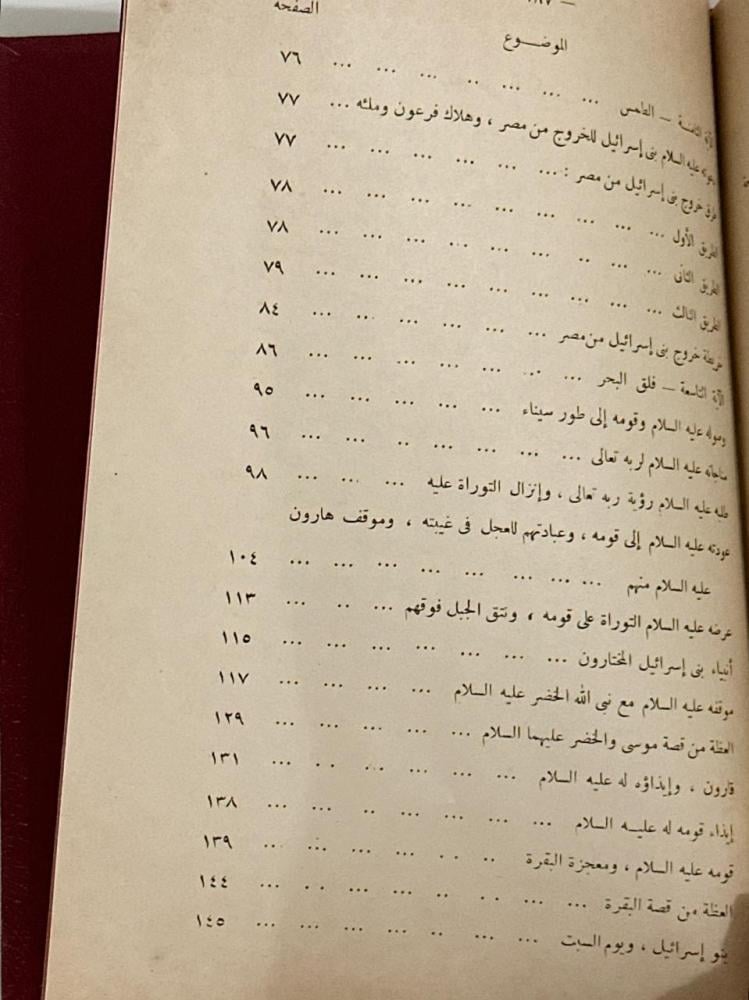 الصفحة
الموضــوع
الآية الثامنة – الطمس ... ... ... ... ... ... ... ٧٦
دعوته عليه السلام بنى إسرائيل للخروج من مصر ، وهلاك فرعون وملئه ... ٧٧
طرق خروج بنى إسرائيل من مصر : ... ... ... ... ... ... ٧٧
الطريق الأول ... ... ... ... ... ... ... ... ... ٧٨
الطريق الثانى ... ... ... ... ... ... ... ... ... ٧٨
الطريق الثالث ... ... ... ... ... ... ... ... ... ٧٩
خريطة خروج بنى إسرائيل من مصر ... ... ... ... ... ... ٨٤
الآية التاسعة – فلق البحر ... ... ... ... ... ... ... ٨٦
وصوله عليه السلام وقومه إلى طور سيناء ... ... ... ... ... ٩٥
مناجاته عليه السلام لربه تعالى ... ... ... ... ... ... ... ٩٦
طلبه عليه السلام رؤية ربه تعالى ، وإنزال التوراة عليه ... ... ... ٩٨
عودته عليه السلام إلى قومه ، وعبادتهم للعجل فى غيبته ، وموقف هارون
عليه السلام منهم ... ... ... ... ... ... ... ... ١٠٤
عرضه عليه السلام التوراة على قومه ، ونتق الجبل فوقهم ... ... ... ١١٣
أنبياء بنى إسرائيل المختارون ... ... ... ... ... ... ... ١١٥
موقفه عليه السلام مع نبى الله الخضر عليه السلام ... ... ... ... ١١٧
العظة من قصة موسى والخضر عليهما السلام ... ... ... ... ... ١٢٩
قارون ، وإيذاؤه له عليه السلام ... ... ... ... ... ... ١٣١
إيذاء قومه له عليــه السلام ... ... ... ... ... ... ... ١٣٨
قومه عليه السلام ، ومعجزة البقرة ... ... ... ... ... ... ١٣٩
العظة من قصة البقرة ... ... ... ... ... ... ... ... ١٤٤
بنو إسرائيل ، ويوم السبت ... ... ... ... ... ... ... ١٤٥